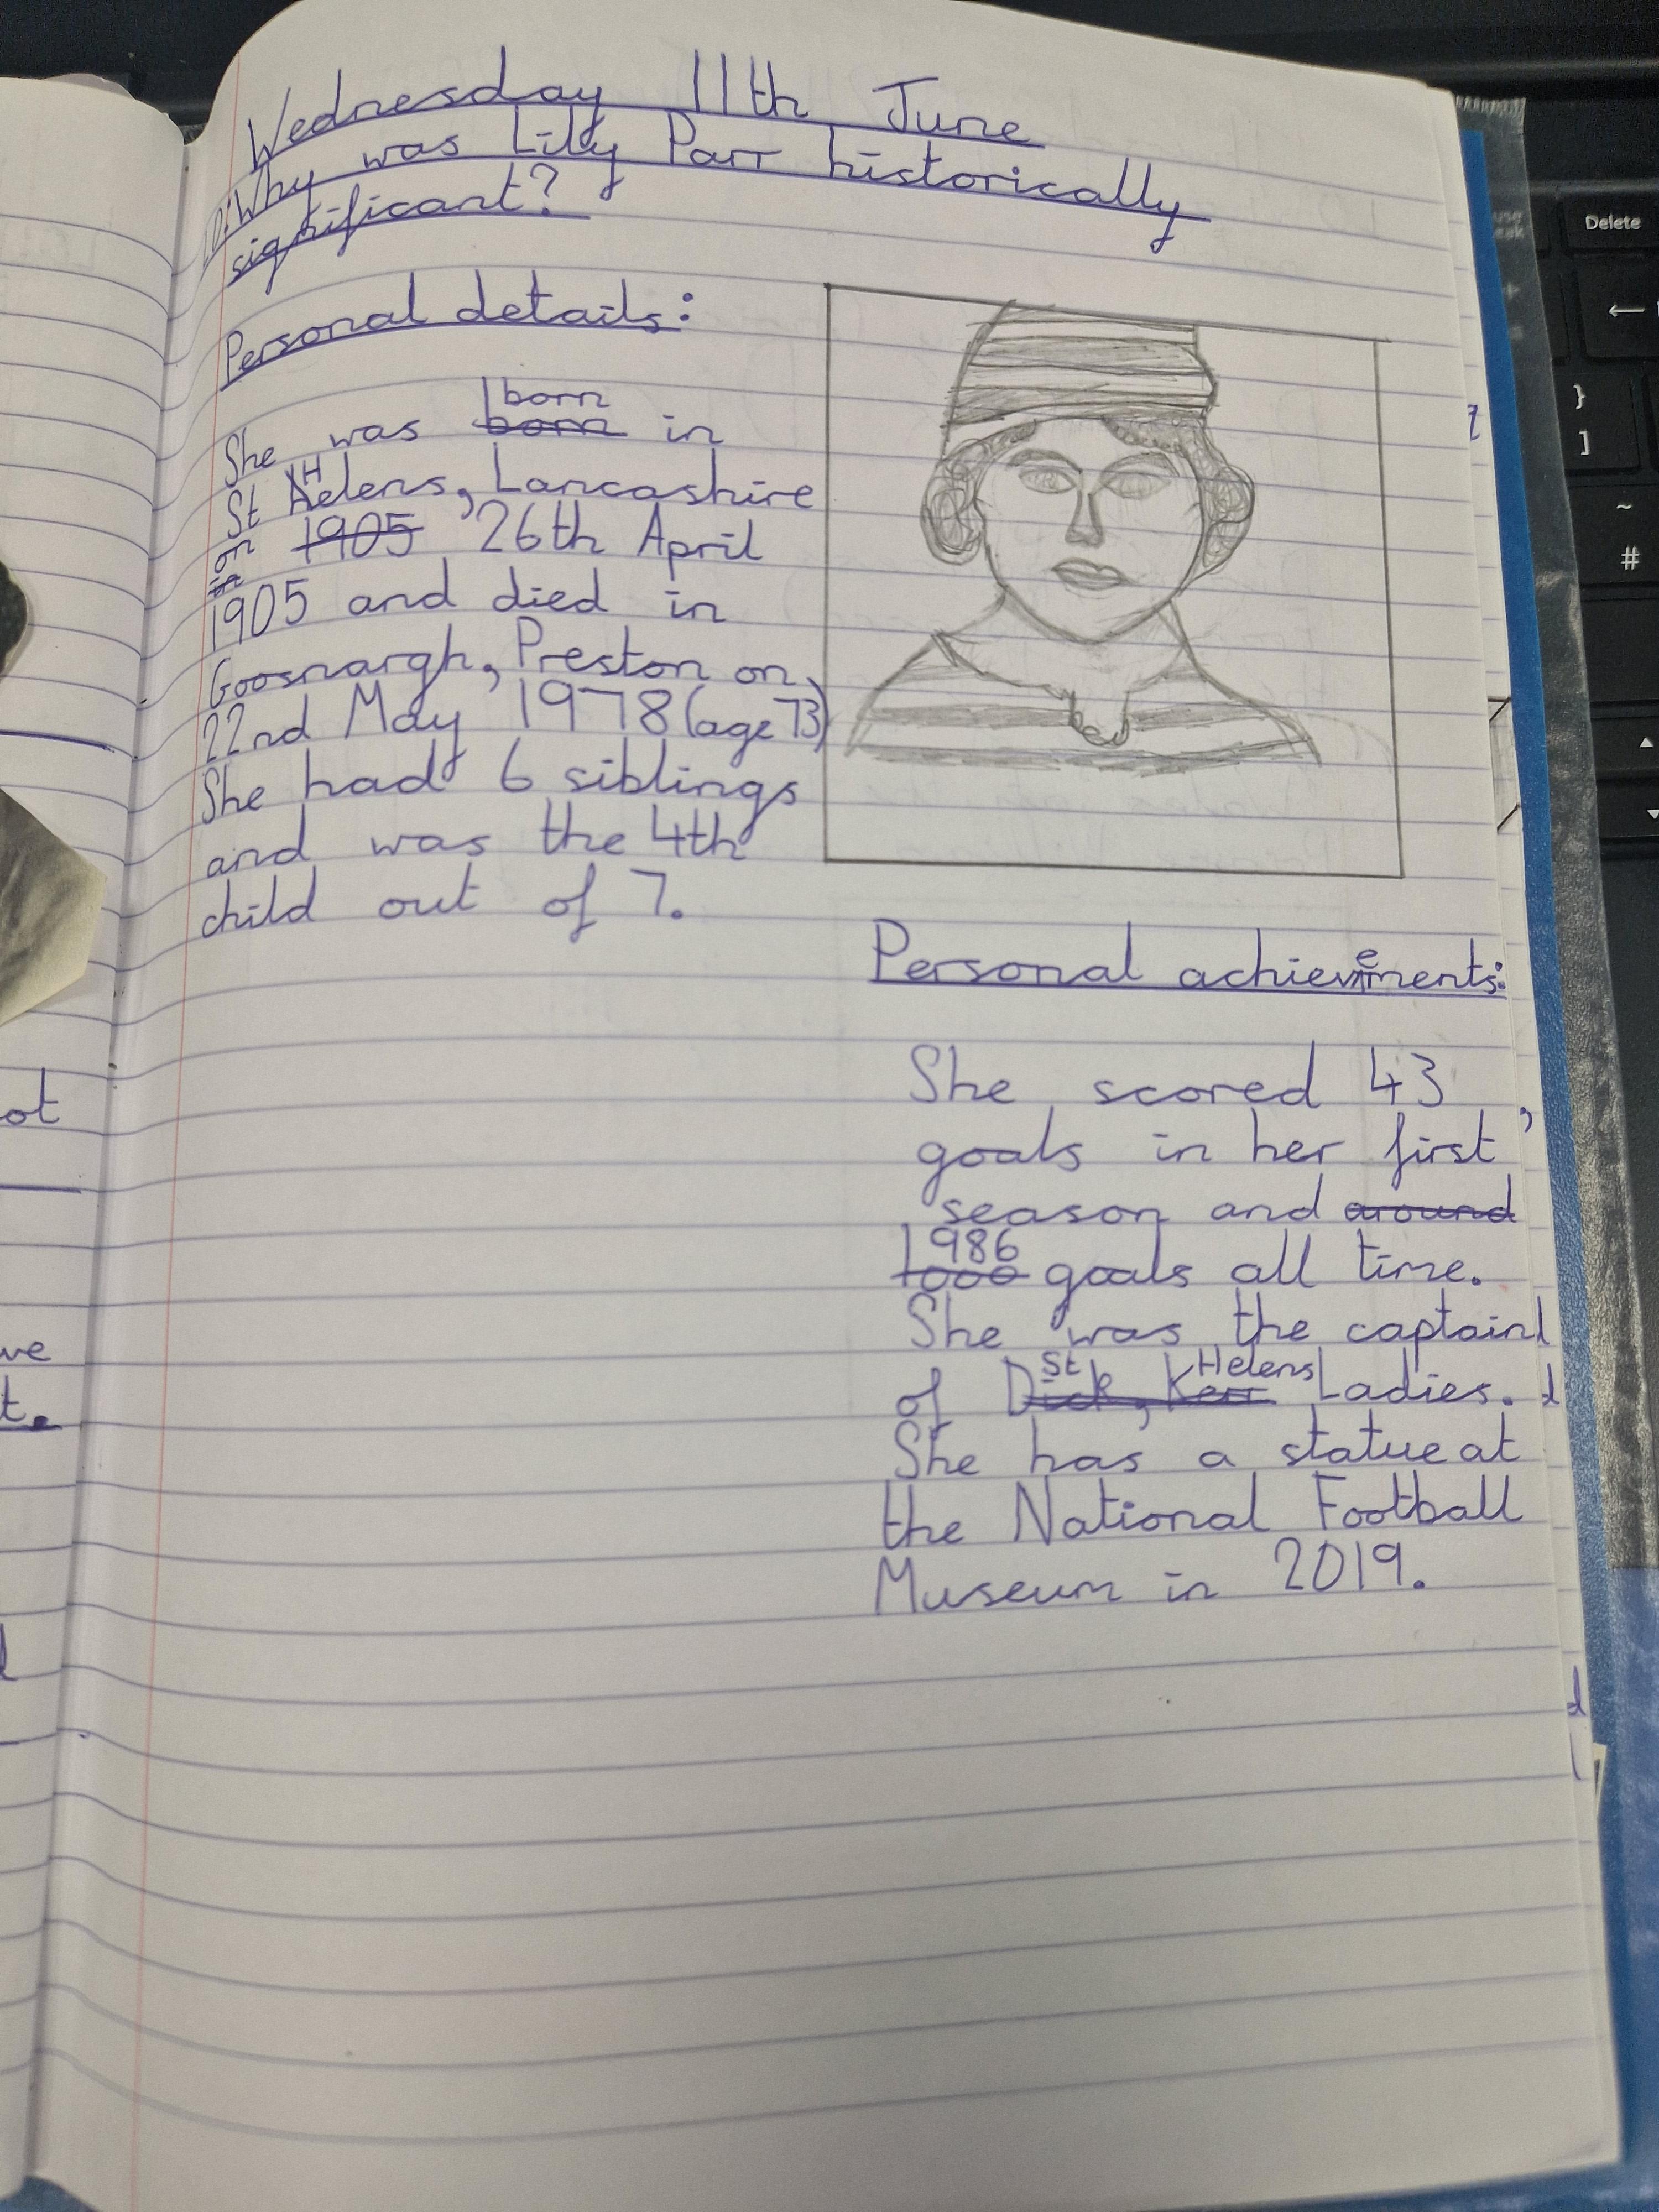 Wednesday 11th June
LO: Why was Lily Parr historically
significant?
Personal details:
She was born born in
St Helens, Lancashire
on 1905 26th April
1905 and died in
Goosnargh, Preston on
22nd May 1978 (age 73)
She had 6 siblings
and was the 4th
child out of 7.
Personal achievements:
She scored 43
goals in her first
season and around
986
1000 goals all time.
She was the captain
St Helens
of Dick, Kerr Ladies.
She has a statue at
the National Football
Museum in 2019.
ot
ve
t.
Delete
}
]
~
#